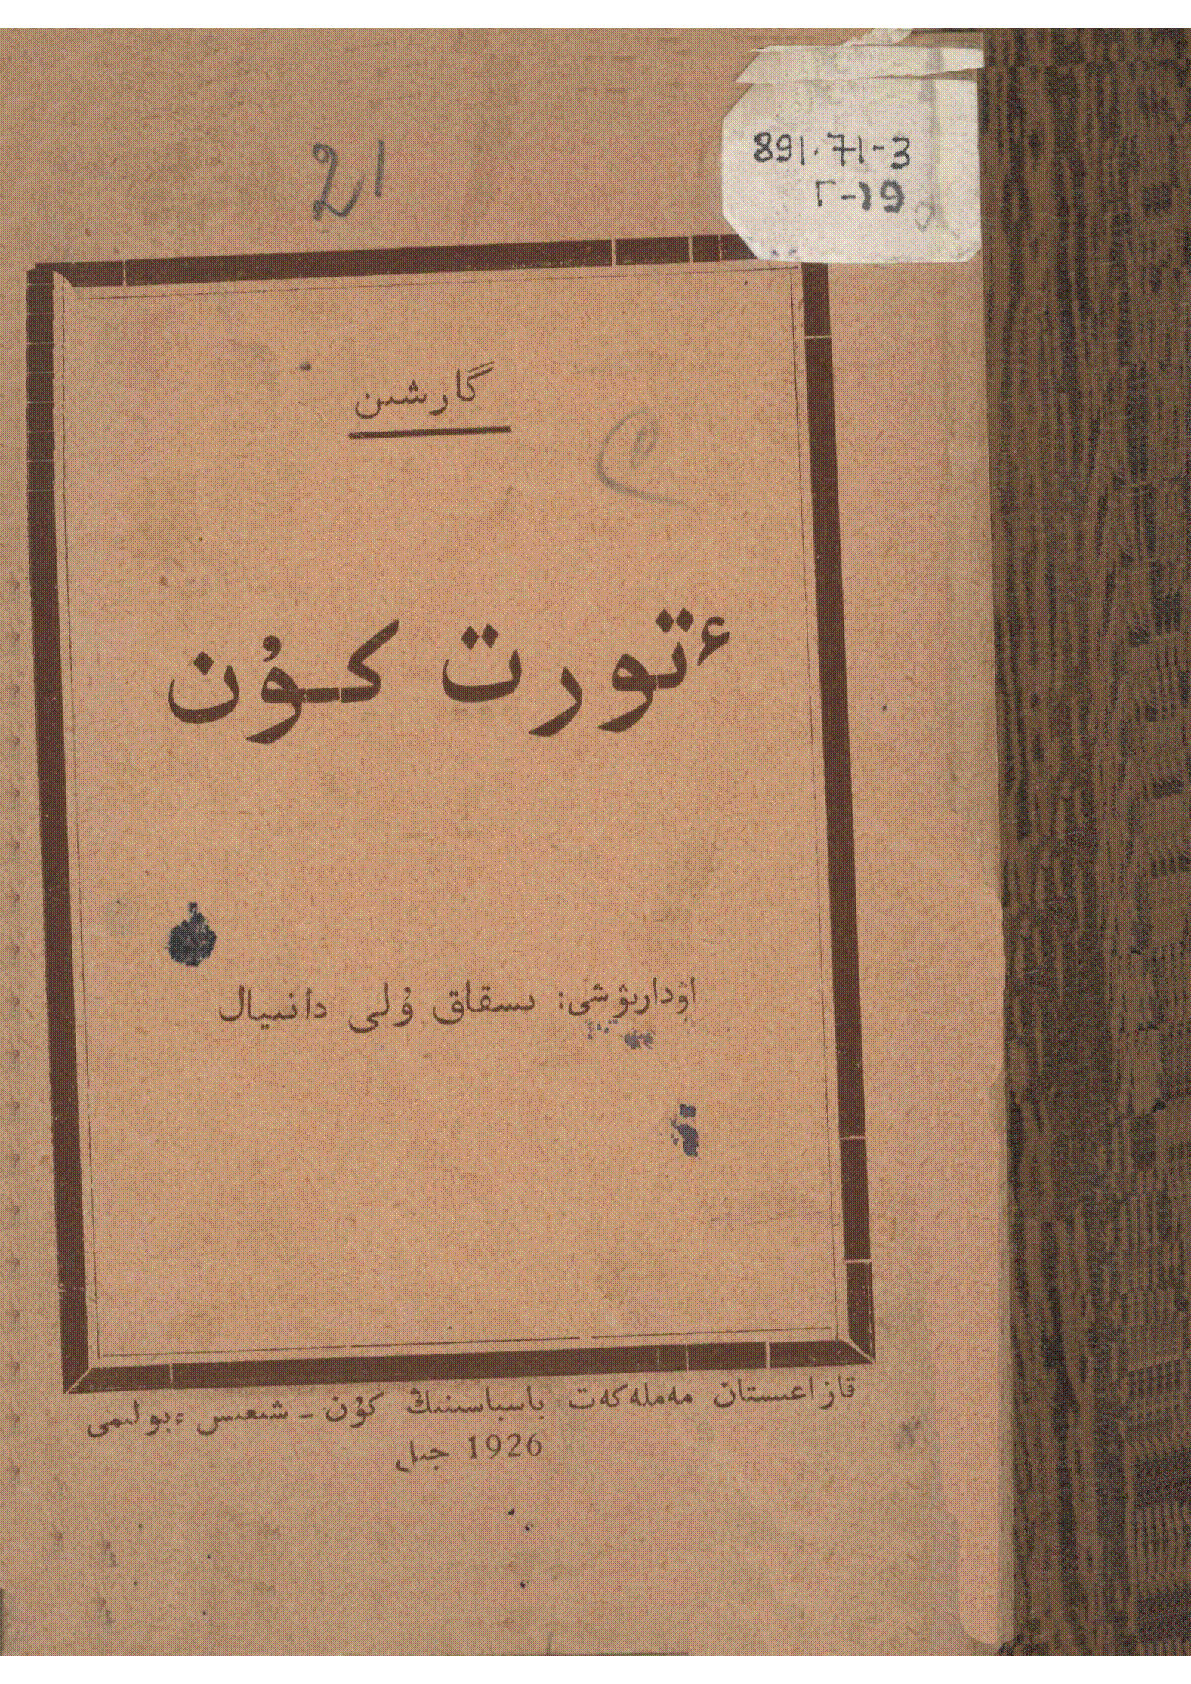 21
891.71-3
Г-19
گارشىن
ٴتورت كۇن
اۋدارىۋشى: ىسقاق ۇلى دانىيال
قازاعىستان مەملەكەت باسپاسىنىڭ كۇن ـ شىعىس ٴبولىمى
1926 جىل